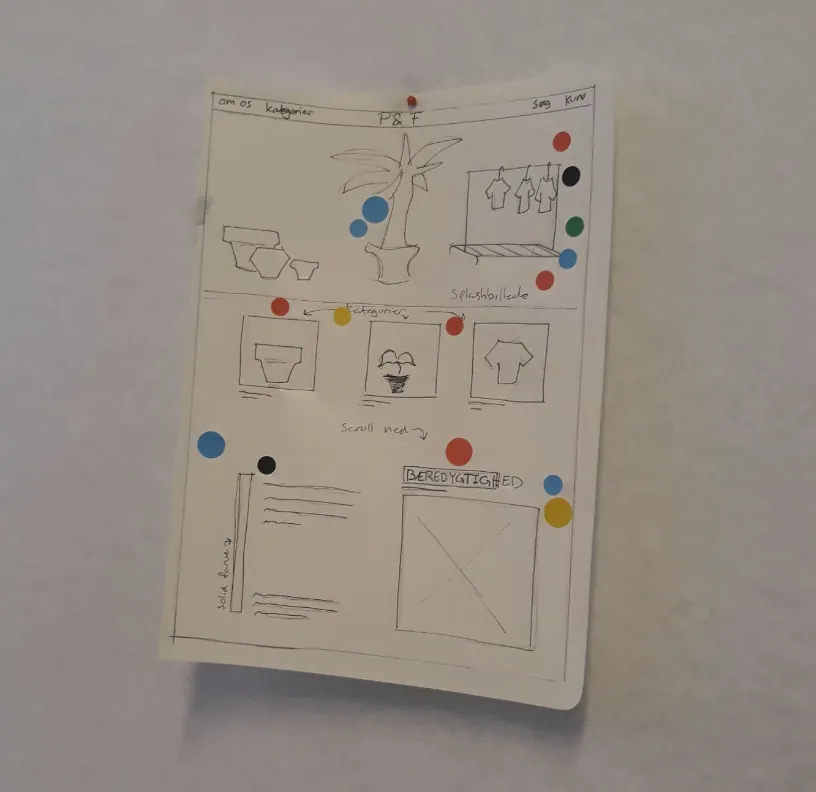 om os kategorier P & F Søg Kurv
Splashbillede
kategorier
Scroll ned
BEREDYGTIGHED
solid farve